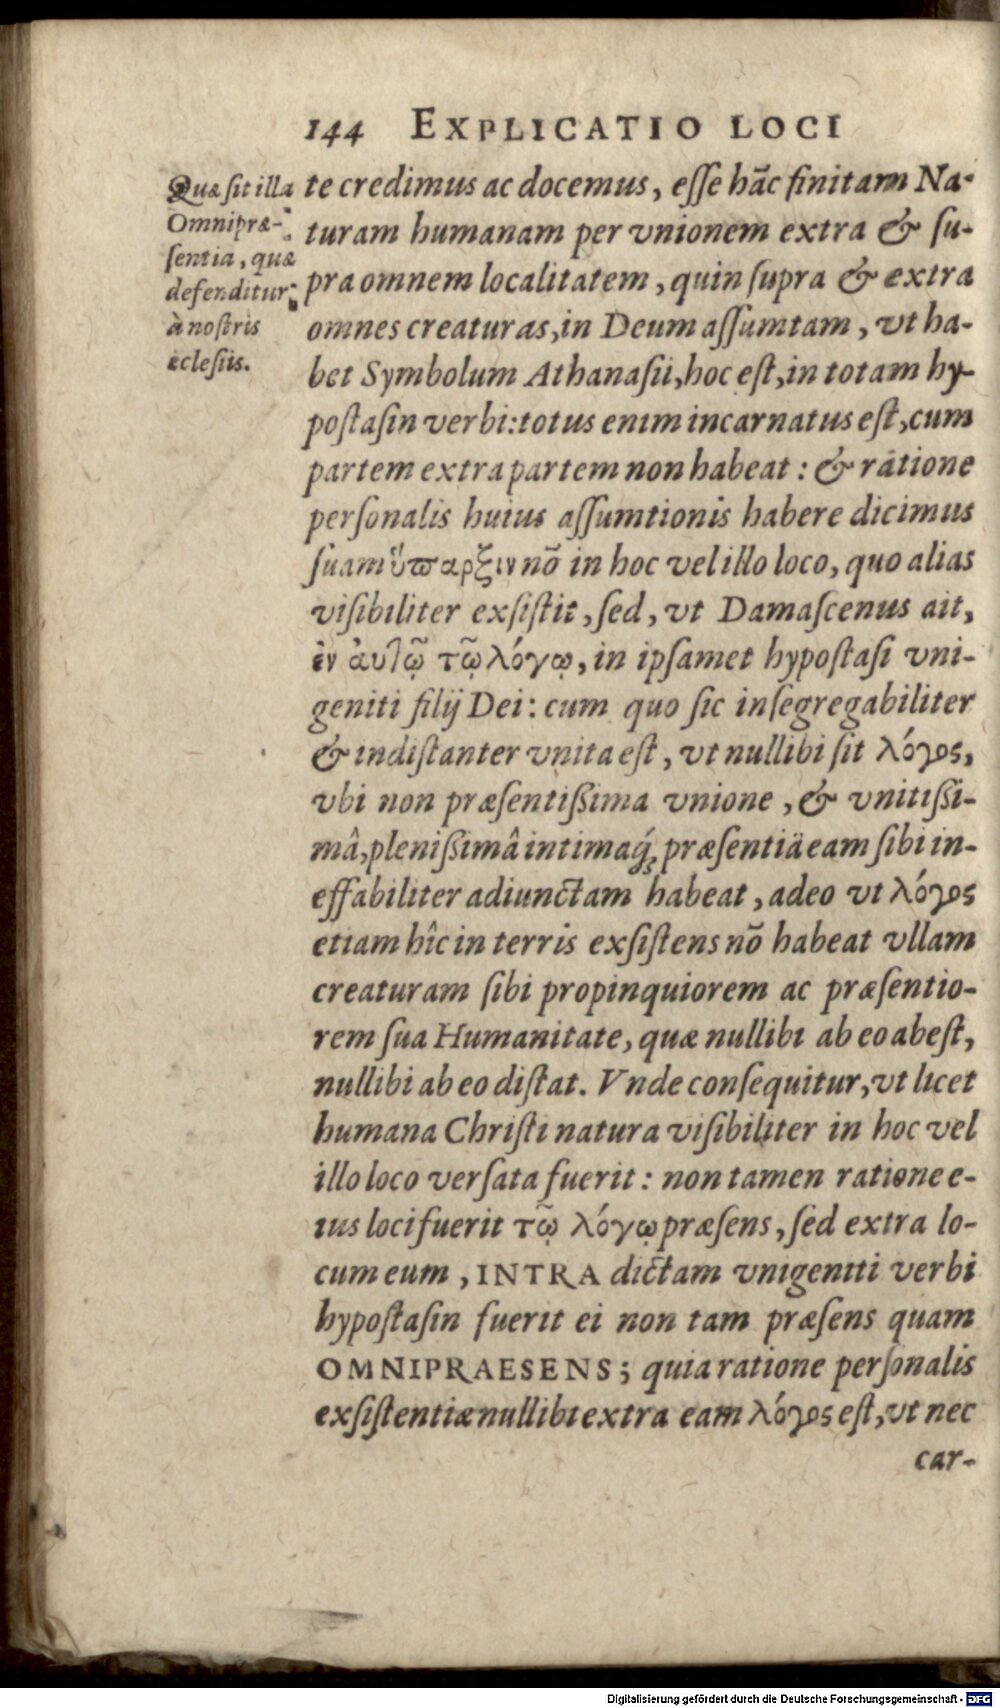 144 EXPLICATIO LOCI
Quæ sit illa
Omnipræ-
sentia, quæ
defenditur
à nostris
eclesiis.
te credimus ac docemus, esse hãc finitam Na-
turam humanam per vnionem extra & su-
pra omnem localitatem, quin supra & extra
omnes creaturas, in Deum assumtam, vt ha-
bet Symbolum Athanasii, hoc est, in totam hy-
postasin verbi: totus enim incarnatus est, cum
partem extra partem non habeat: & ratione
personalis huius assumtionis habere dicimus
suam ὕπαρξιν nõ in hoc vel illo loco, quo alias
visibiliter exsistit, sed, vt Damascenus ait,
ἐν ἀυτῷ τῷ λόγῳ, in ipsamet hypostasi vni-
geniti filij Dei: cum quo sic insegregabiliter
& indistanter vnita est, vt nullibi sit λόγος,
vbi non præsentißima vnione, & vnitißi-
mâ, plenißimâ intimaq́; præsentiä eam sibi in-
effabiliter adiunctam habeat, adeo vt λόγος
etiam hîc in terris exsistens nõ habeat vllam
creaturam sibi propinquiorem ac præsentio-
rem sua Humanitate, quæ nullibi ab eo abest,
nullibi ab eo distat. Vnde consequitur, vt licet
humana Christi natura visibiliter in hoc vel
illo loco versata fuerit: non tamen ratione e-
ius loci fuerit τῷ λόγῳ præsens, sed extra lo-
cum eum, INTRA dictam vnigeniti verbi
hypostasin fuerit ei non tam præsens quam
OMNIPRAESENS; quia ratione personalis
exsistentiæ nullibi extra eam λόγος est, vt nec
car-
Digitalisierung gefördert durch die Deutsche Forschungsgemeinschaft - DFG